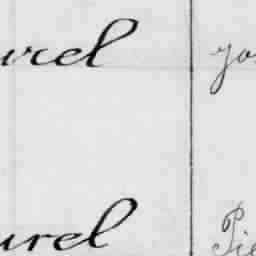 urel yo
urel Pie